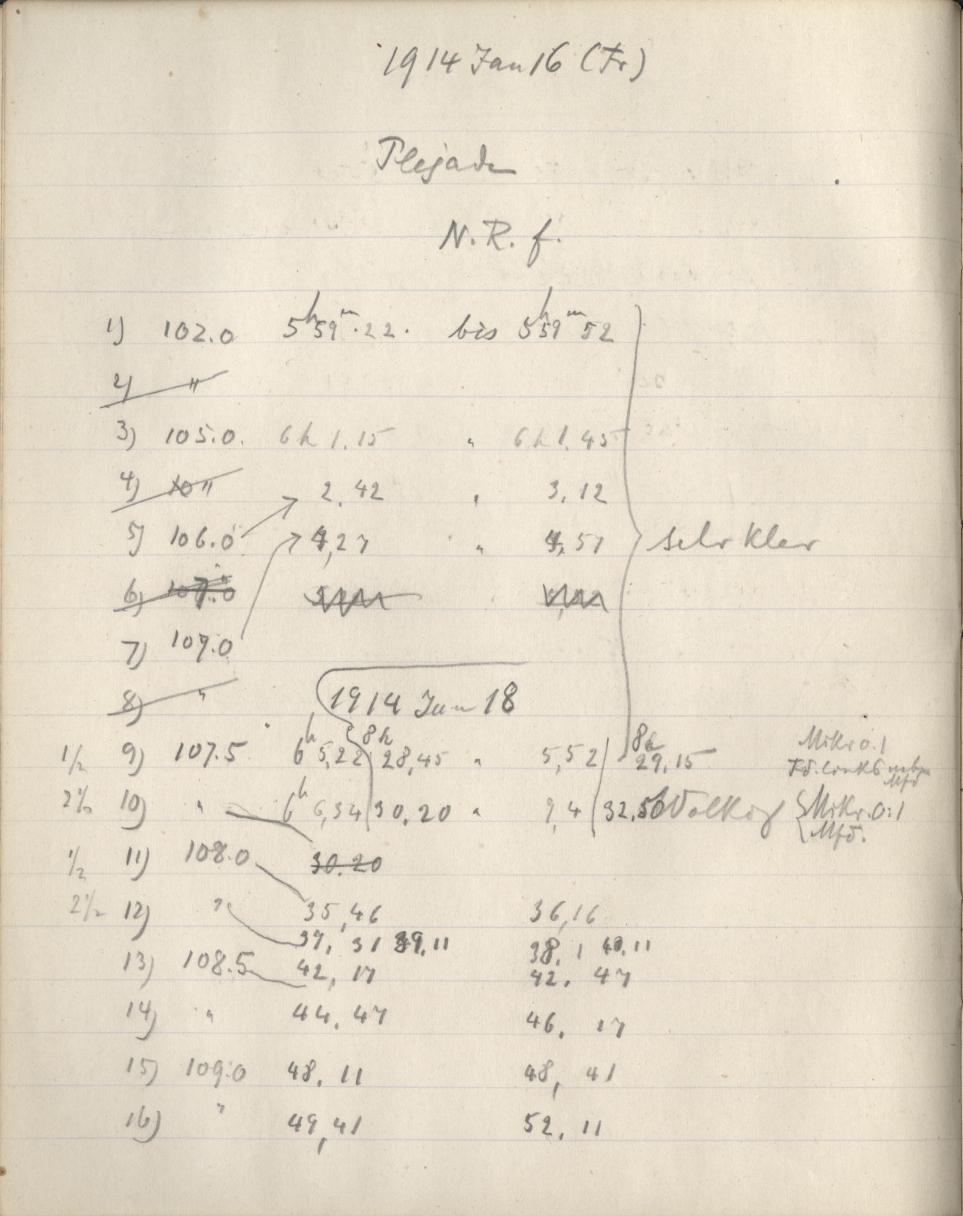 1914 Jan 16 (Fr)
Plejaden
N. R. f.
1) 102.0 5h 59m. 22. bis 5h 59m 52
2) "
3) 105.0. 6h 1.15 " 6h 1.45
4) "
2,42 " 3,12
5) 106.0 4,27 " 4,57 sehr klar
6) 107.0
7) 107.0
8) " 1914 Jan 18
1/2 9) 107.5 6h 5,22 8h 28,45 " 5,52 8h 29,15 Mikr 0.1
Fd. links neben Mfd
2 1/2 10) " 6h 6,34 30,20 " 9,4 32,50 Wolkig Mikr. 0:1
Mfd.
1/2 11) 108.0 30.20
2 1/2 12) " 35,46 36,16
37, 31 39,11 38,1 40,11
13) 108.5 42, 17 42. 47
14) " 44. 47 46. 17
15) 109.0 48. 11 48, 41
16) " 49,41 52. 11